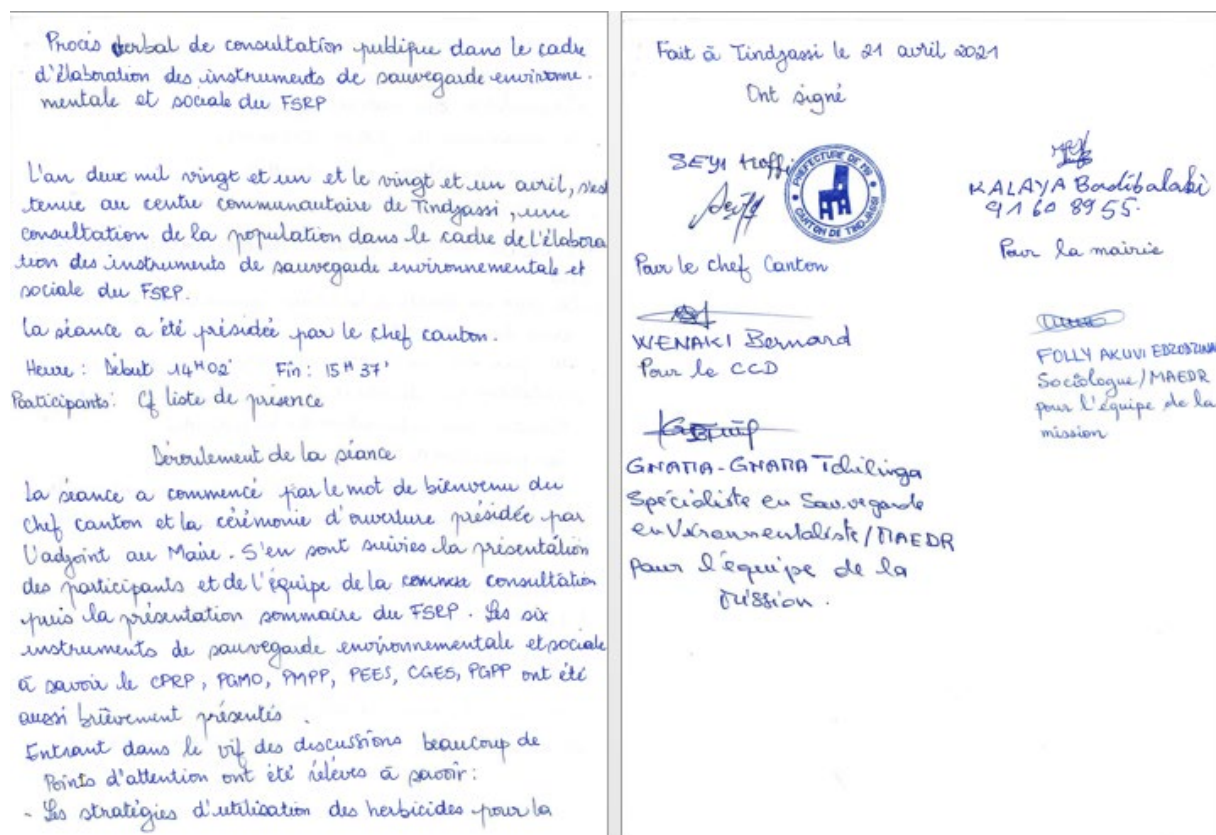 Procès verbal de consultation publique dans le cadre
d'élaboration des instruments de sauvegarde environne-
mentale et sociale du FSRP
L'an deux mil vingt et un et le vingt et un avril, s'est
tenue au centre communautaire de Tindjassi, une
consultation de la population dans le cadre de l'élabora
tion des instruments de sauvegarde environnementale et
sociale du FSRP.
La séance a été présidée par le chef canton.
Heure : Début 14H02' Fin : 15H 37'
Participants : Cf liste de présence
Déroulement de la séance
La séance a commencé par le mot de bienvenu du
chef canton et la cérémonie d'ouverture présidée par
l'adjoint au Maire. S'en sont suivies la présentation
des participants et de l'équipe de la consultation
puis la présentation sommaire du FSRP. Les six
instruments de sauvegarde environnementale et sociale
à savoir le CPRP, PGMO, PMPP, PEES, CGES, PGPP ont été
aussi brièvement présentés.
Entrant dans le vif des discussions beaucoup de
Points d'attention ont été relevés à savoir :
- Les stratégies d'utilisation des herbicides pour la
Fait à Tindjassi le 21 avril 2021
Ont signé
SEYI Koffi
PREFECTURE DE
CANTON DE TINDJASSI
Pour le chef Canton
KALAYA Bodibalaki
91 60 89 55.
Pour la mairie
WENAKI Bernard
Pour le CCD
FOLLY AKUVI EDZODZINAM
Sociologue/MAEDR
pour l'équipe de la
mission
GNAMA-GNAMA Tchilinga
Spécialiste en Sauvegarde
enVironnementaliste/MAEDR
Pour l'équipe de la
Mission.